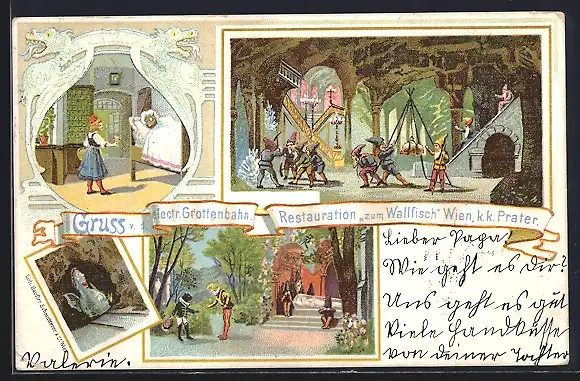 Gruss v. d. electr. Grottenbahn.
Restauration „zum Wallfisch" Wien, k.k. Prater.
Lieber Papa
Wie geht es dir?
Uns geht es gut
Viele Handküsse
von deiner Tochter
Valerie.